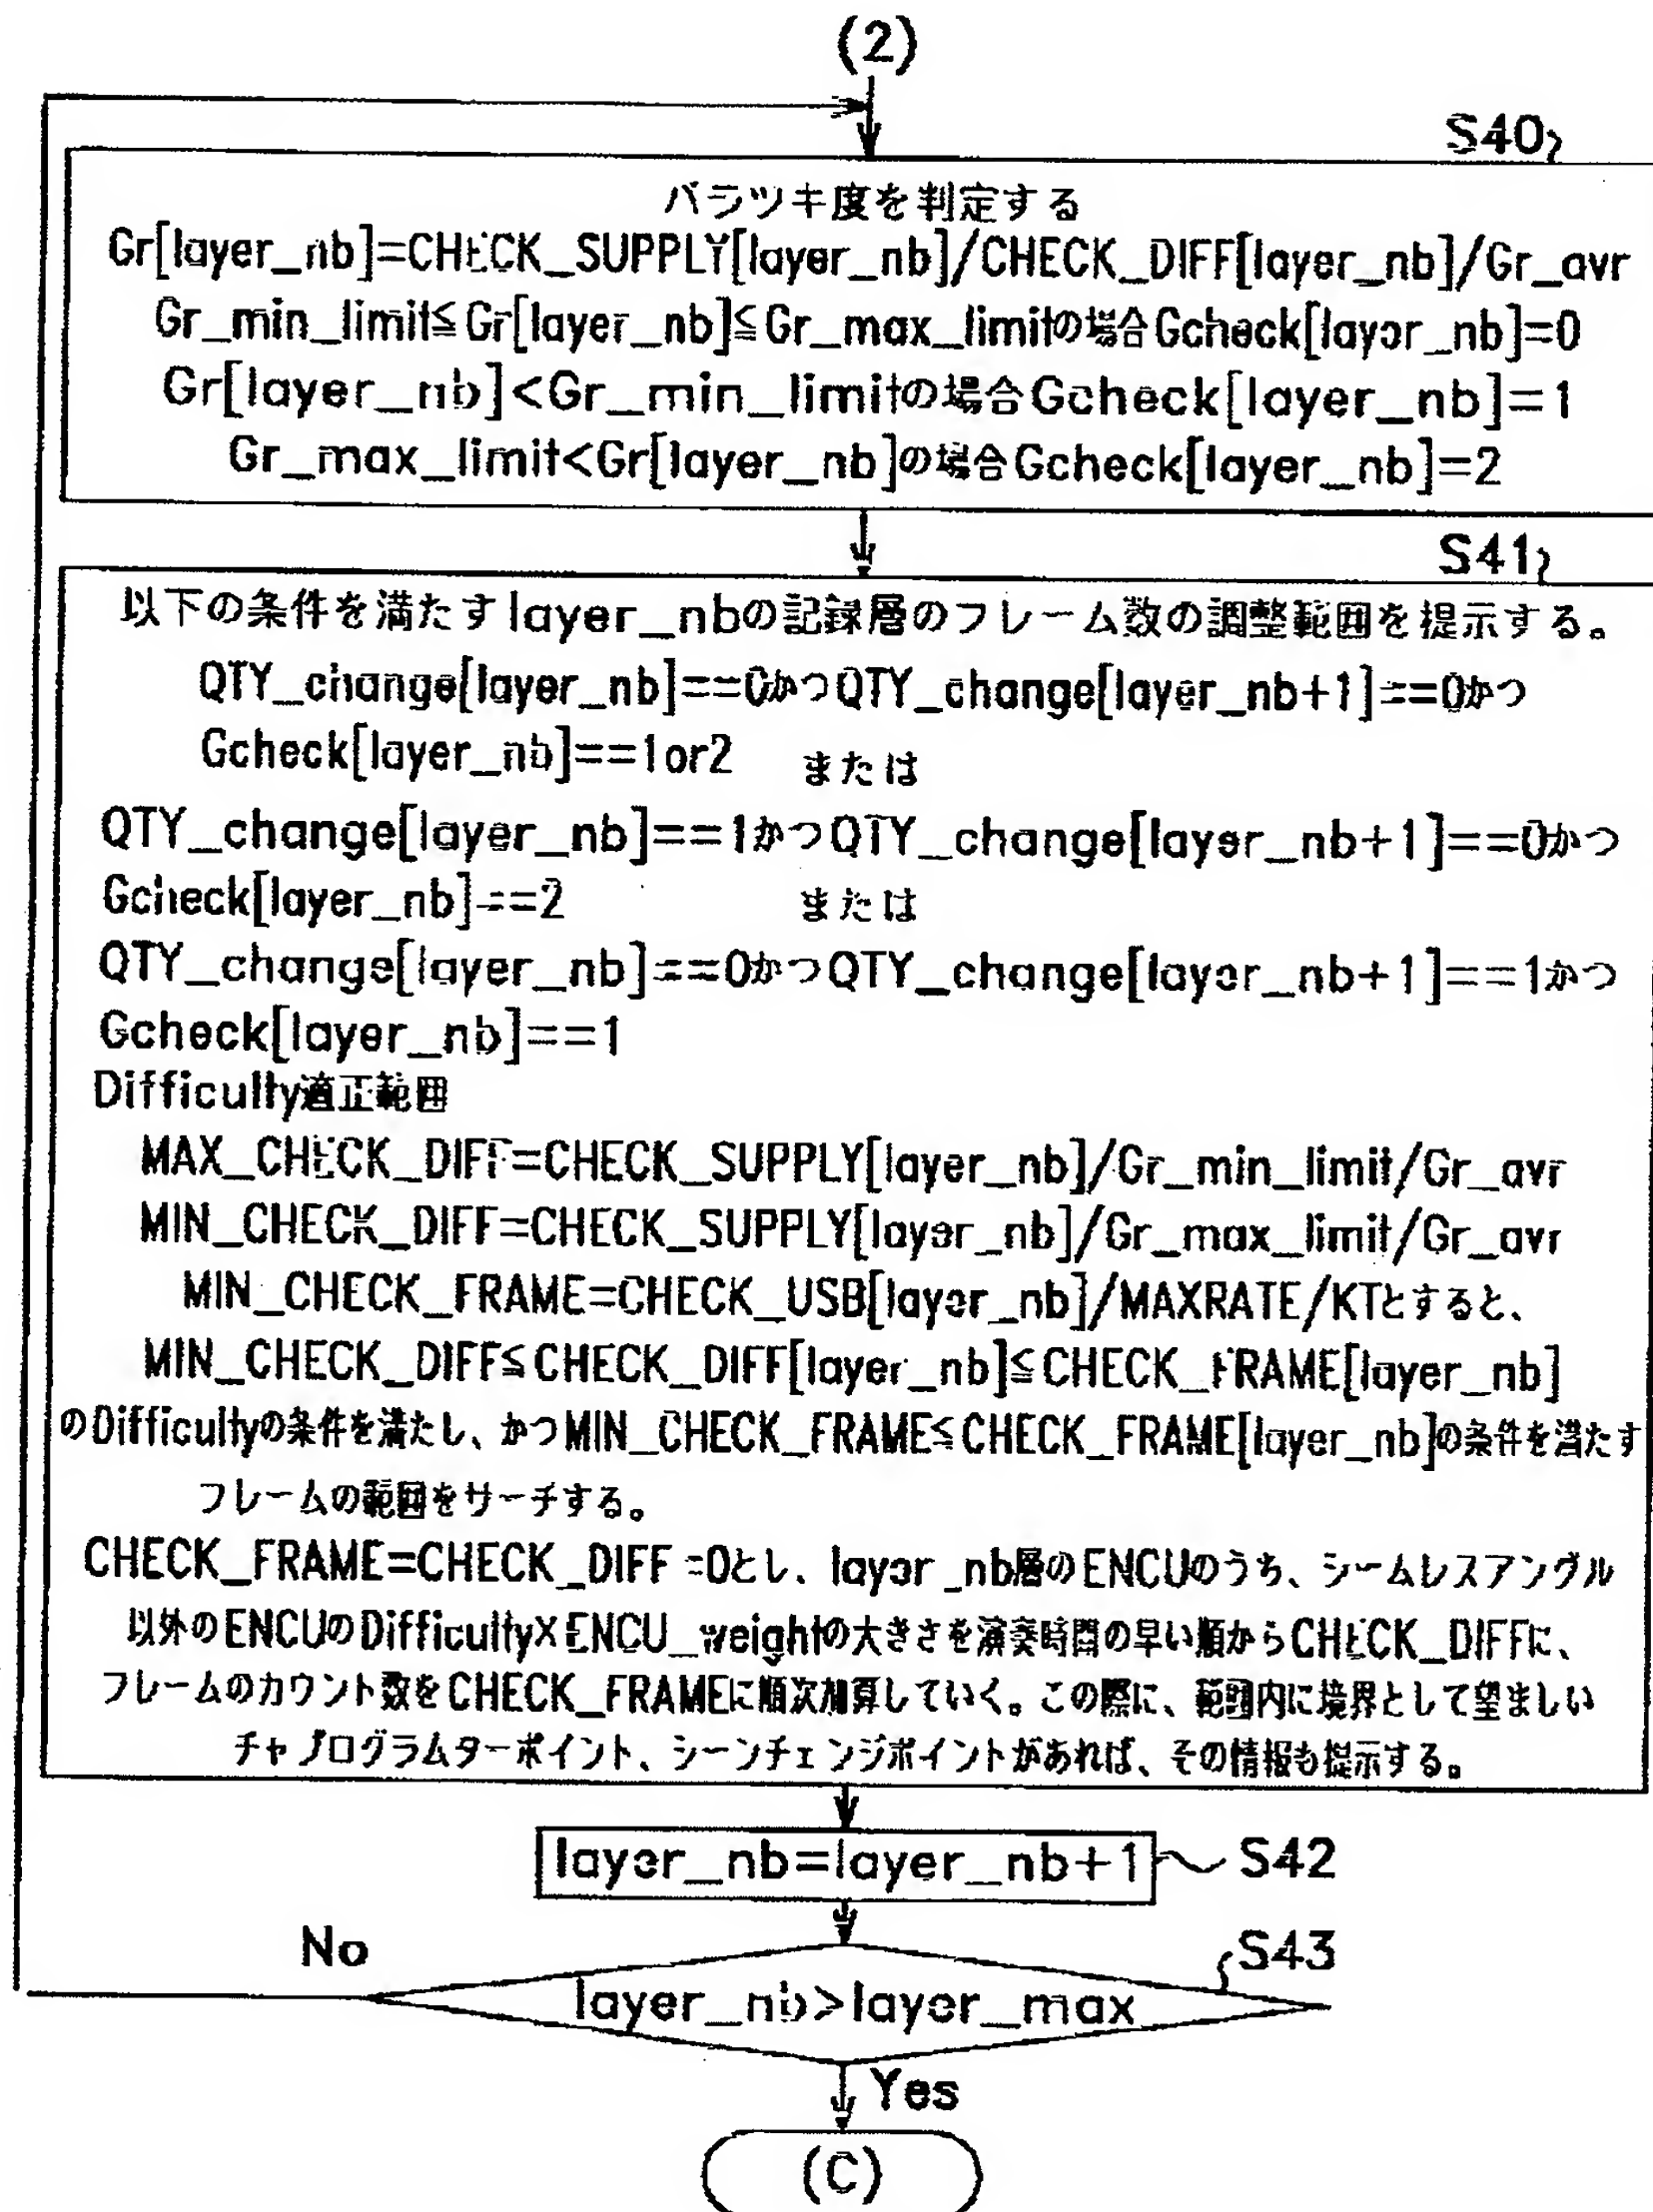 (2)
S40
バラツキ度を判定する
Gr[layer_nb]=CHECK_SUPPLY[layer_nb]/CHECK_DIFF[layer_nb]/Gr_avr
Gr_min_limit≦Gr[layer_nb]≦Gr_max_limitの場合Gcheck[layer_nb]=0
Gr[layer_nb]<Gr_min_limitの場合Gcheck[layer_nb]=1
Gr_max_limit<Gr[layer_nb]の場合Gcheck[layer_nb]=2
S41
以下の条件を満たすlayer_nbの記録層のフレーム数の調整範囲を提示する。
QTY_change[layer_nb]==0かつQTY_change[layer_nb+1]==0かつ
Gcheck[layer_nb]==1or2 または
QTY_change[layer_nb]==1かつQTY_change[layer_nb+1]==0かつ
Gcheck[layer_nb]==2 または
QTY_change[layer_nb]==0かつQTY_change[layer_nb+1]==1かつ
Gcheck[layer_nb]==1
Difficulty適正範囲
MAX_CHECK_DIFF=CHECK_SUPPLY[layer_nb]/Gr_min_limit/Gr_avr
MIN_CHECK_DIFF=CHECK_SUPPLY[layer_nb]/Gr_max_limit/Gr_avr
MIN_CHECK_FRAME=CHECK_USB[layer_nb]/MAXRATE/KTとすると、
MIN_CHECK_DIFF≦CHECK_DIFF[layer_nb]≦CHECK_FRAME[layer_nb]
のDifficultyの条件を満たし、かつMIN_CHECK_FRAME≦CHECK_FRAME[layer_nb]の条件を満たす
フレームの範囲をサーチする。
CHECK_FRAME=CHECK_DIFF=0とし、layer_nb層のENCUのうち、シームレスアングル
以外のENCUのDifficulty×ENCU_weightの大きさを演奏時間の早い順からCHECK_DIFFに、
フレームのカウント数をCHECK_FRAMEに順次加算していく。この際に、範囲内に境界として望ましい
チャプログラムターポイント、シーンチェンジポイントがあれば、その情報も提示する。
layer_nb=layer_nb+1 S42
No
S43
layer_nb>layer_max
Yes
(C)